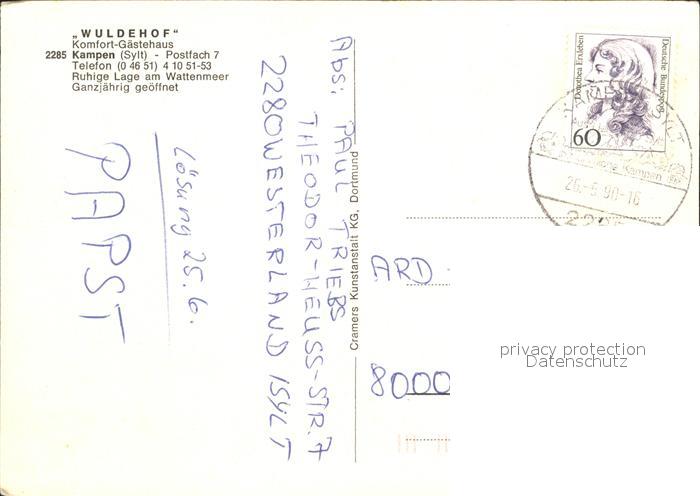 „WULDEHOF“
Komfort-Gästehaus
2285 Kampen (Sylt) - Postfach 7
Telefon (0 46 51) 4 10 51-53
Ruhige Lage am Wattenmeer
Ganzjährig geöffnet
Lösung 25.6.
PAPST
Abs: PAUL TRIEBS
THEODOR-HEUSS-STR. 7
2280 WESTERLAND / SYLT
Cramers Kunstanstalt KG, Dortmund
Dorothea Erxleben
Deutsche Bundespost
60
Kampen
90-16
ARD
8000
privacy protection
Datenschutz